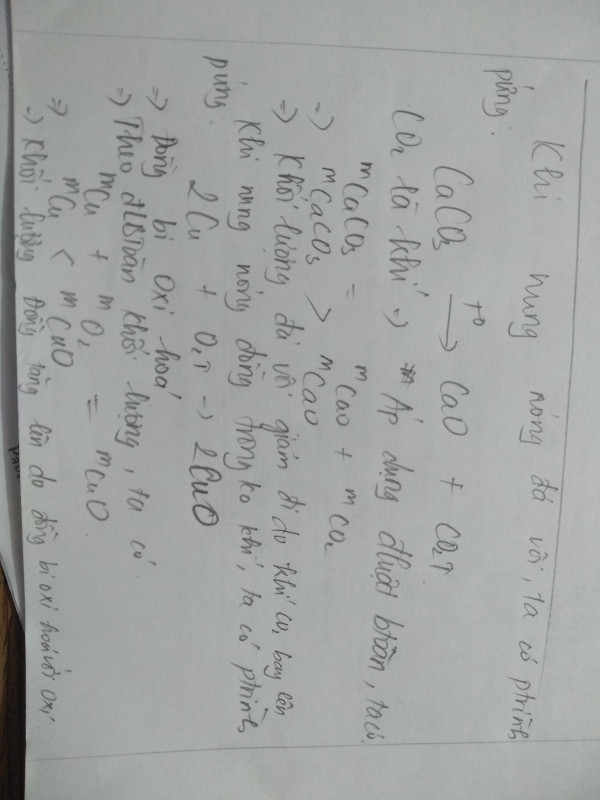 Khi nung nóng đá vôi, ta có ptrình
pứng:
CaCO₃ →t° CaO + CO₂↑
CO₂ là khí => Áp dụng đluật btoàn, ta có
mCaCO₃ = mCaO + mCO₂
=> mCaCO₃ > mCaO
=> Khối lượng đá vôi giảm đi do khí CO₂ bay lên
Khi nung nóng đồng trong ko khí, ta có ptrình
pứng:
2Cu + O₂↑ -> 2CuO
=> Đồng bị oxi hoá
=> Theo đlBtoàn khối lượng, ta có
mCu + mO₂ = mCuO
=> mCu < mCuO
=> Khối lượng đồng tăng lên do đồng bị oxi hoá với oxi